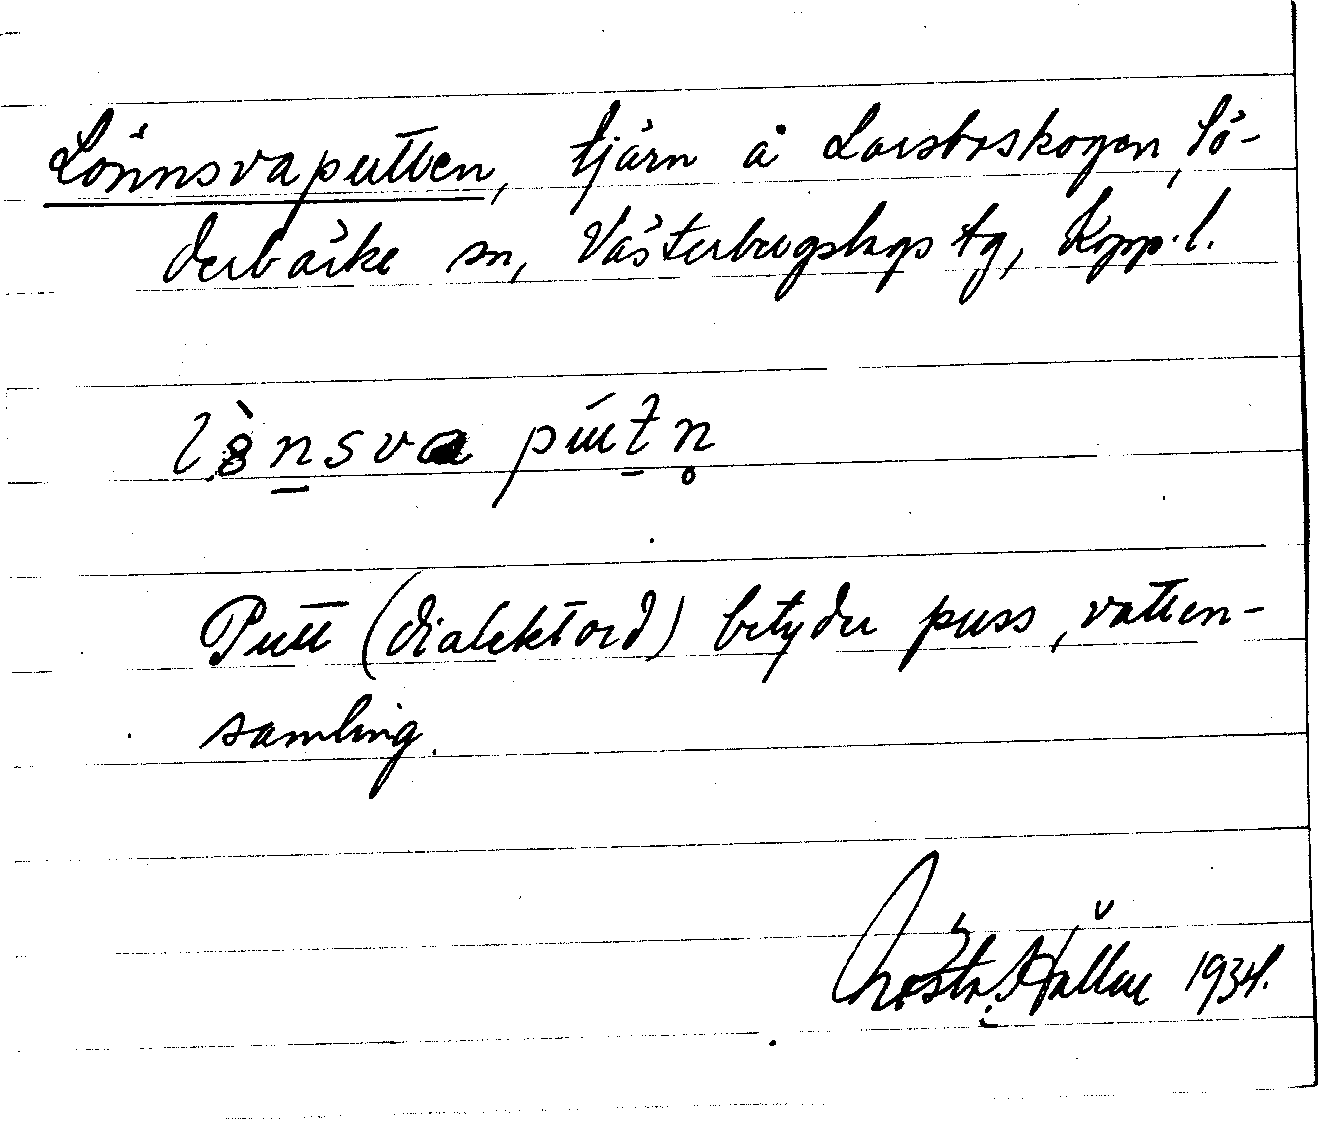 Lönnsvaputten, tjärn å Larsboskogen, Sö-
derbärke sn, Västerbergslags tg, Kopp.l.
lònsva pútn̥
Putt (dialektord) betyder puss, vatten-
samling.
Hällen 1934.